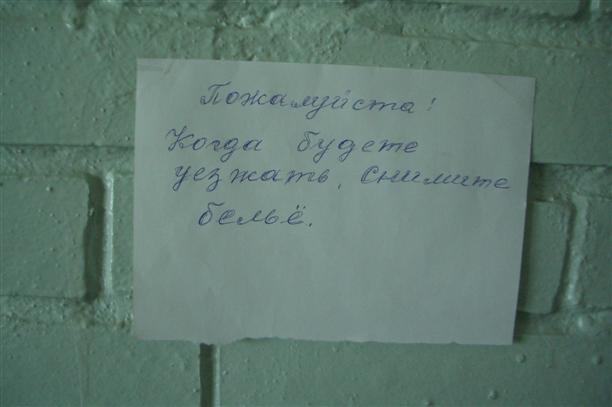 Пожалуйста!
Когда будете
уезжать, снимите
бельё.